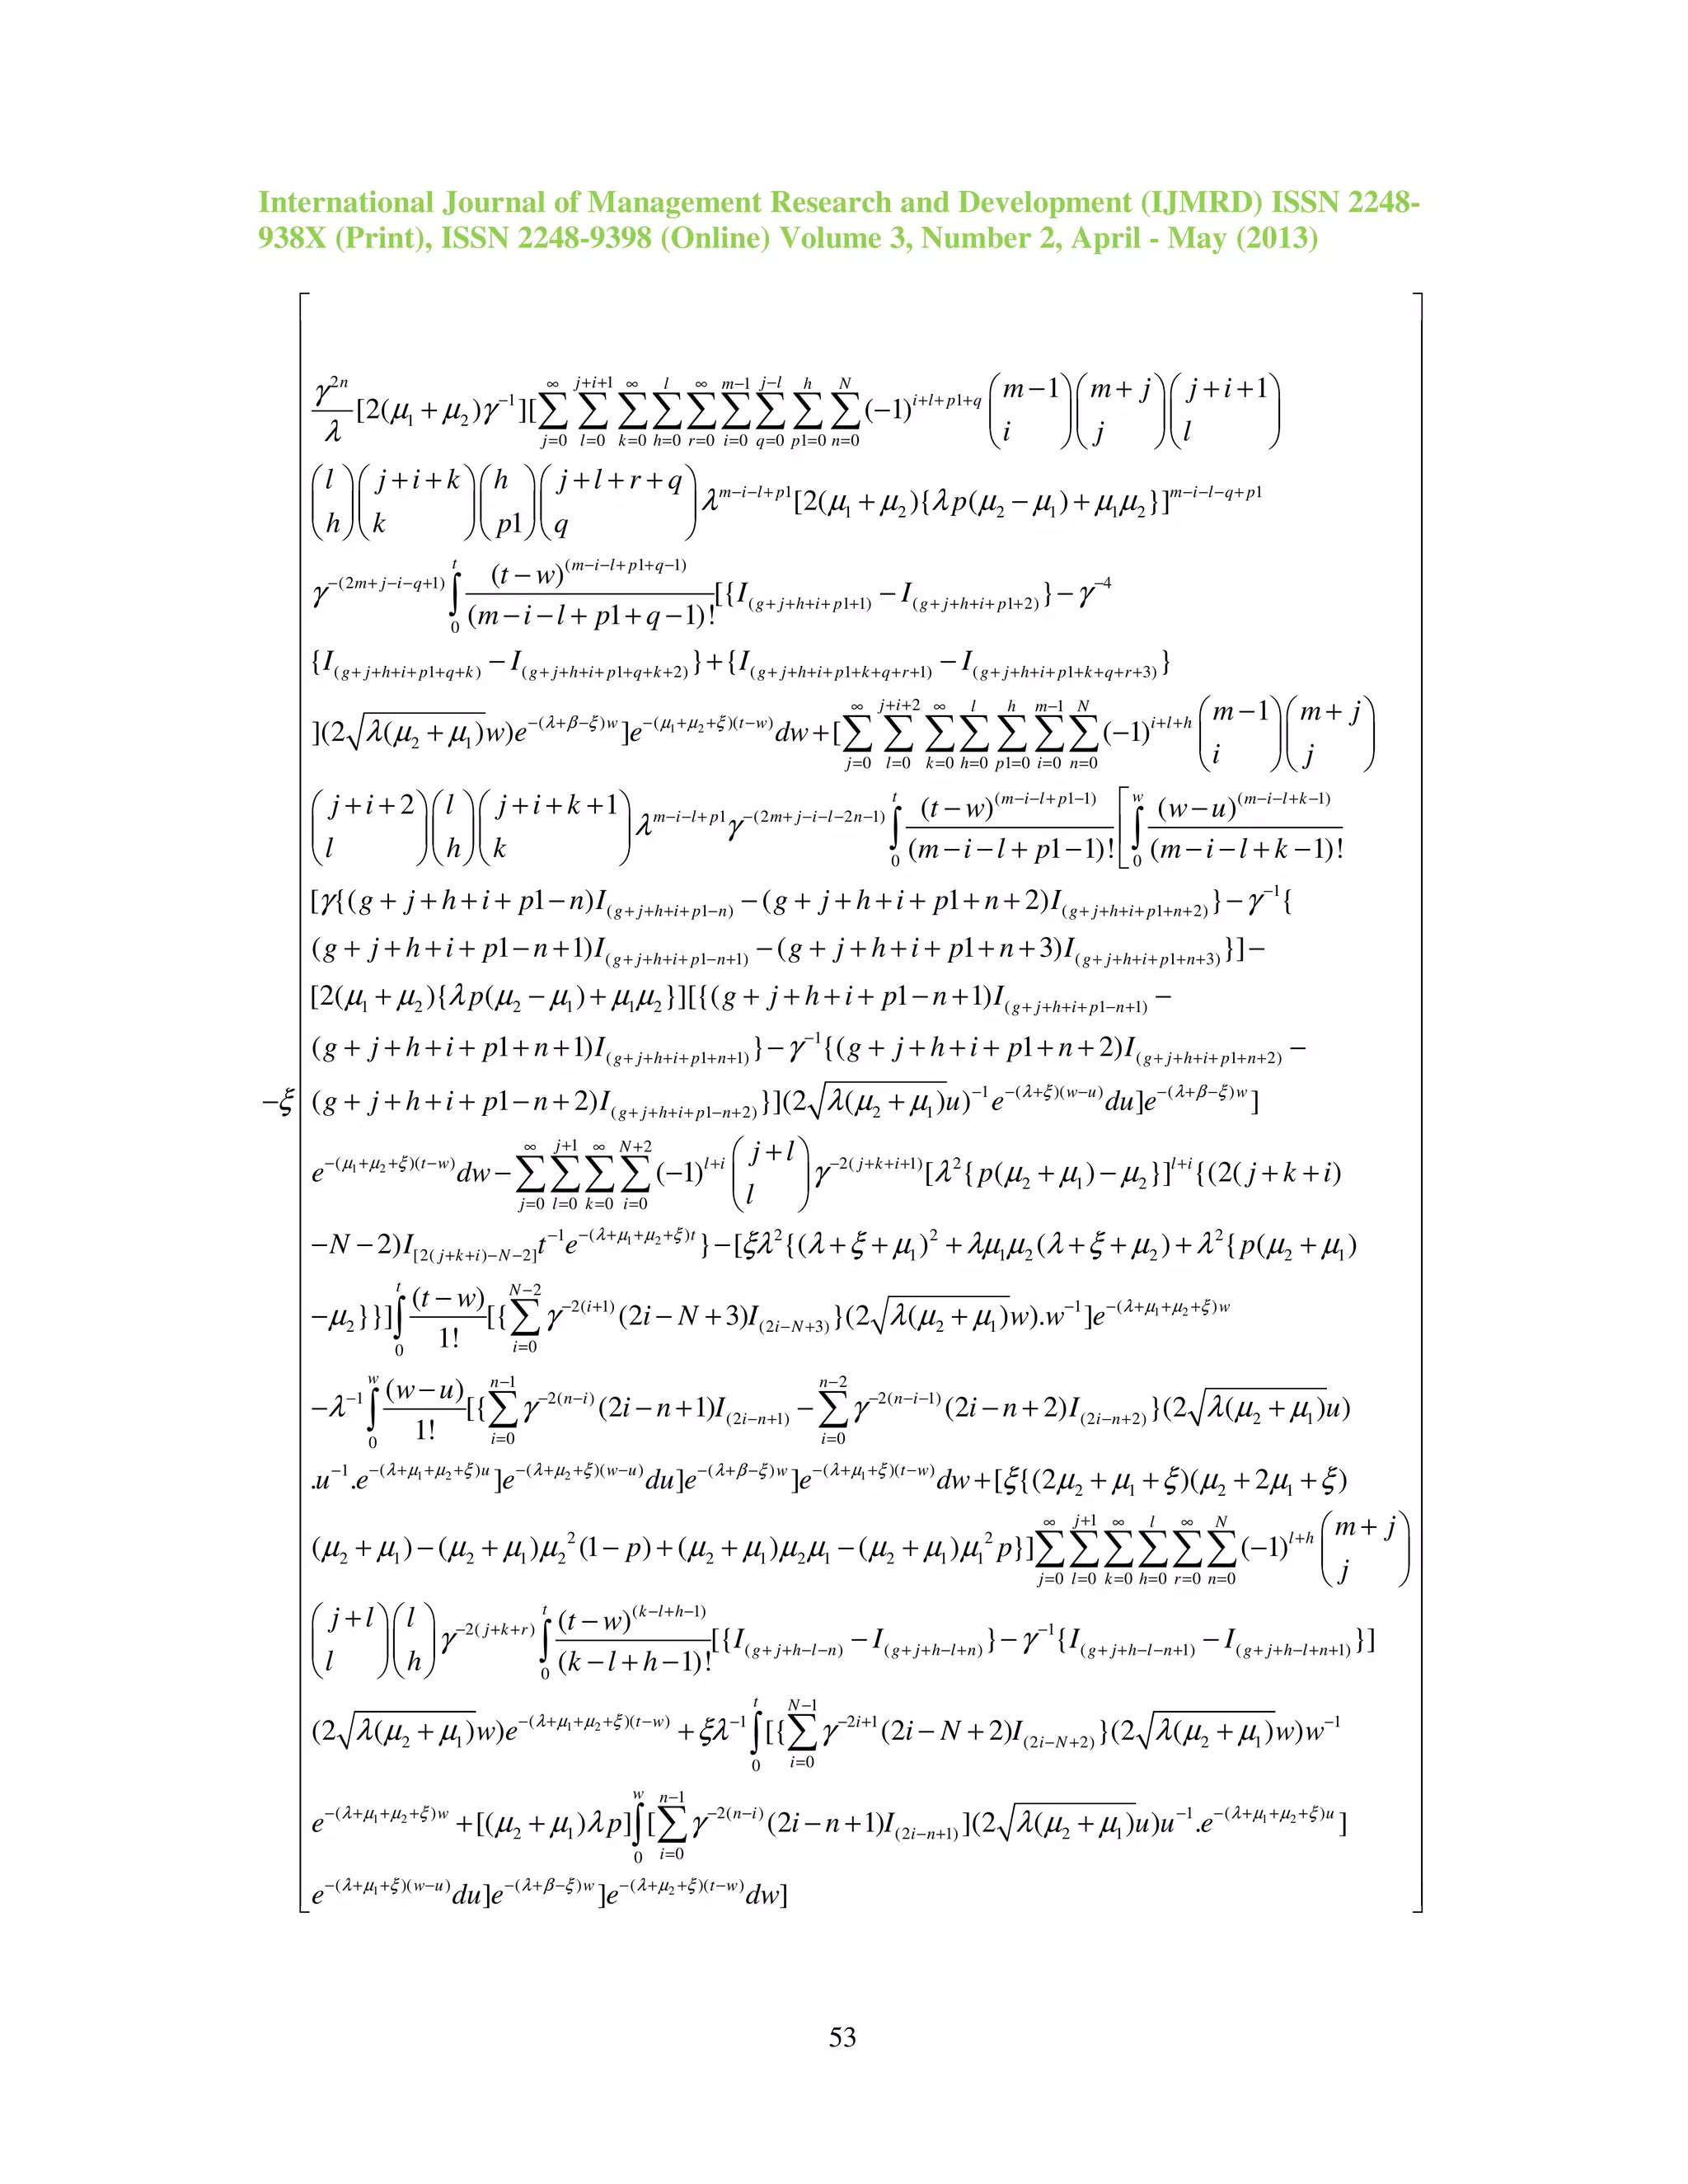 International Journal of Management Research and Development (IJMRD) ISSN 2248-
938X (Print), ISSN 2248-9398 (Online) Volume 3, Number 2, April - May (2013)
\frac{γ^{2n}}{λ}[2(μ_1+μ_2)γ^{-1}][\sum_{j=0}^{∞}\sum_{l=0}^{j+i+1}\sum_{k=0}^{∞}\sum_{h=0}^{l}\sum_{r=0}^{∞}\sum_{i=0}^{m-1}\sum_{q=0}^{j-l}\sum_{p1=0}^{h}\sum_{n=0}^{N}(-1)^{i+l+p1+q}\binom{m-1}{i}\binom{m+j}{j}\binom{j+i+1}{l}
\binom{l}{h}\binom{j+i+k}{k}\binom{h}{p1}\binom{j+l+r+q}{q}λ^{m-i-l+p1}[2(μ_1+μ_2){λp(μ_2-μ_1)+μ_1μ_2}]^{m-i-l-q+p1}
γ^{-(2m+j-i-q+1)}\int_0^t\frac{(t-w)^{(m-i-l+p1+q-1)}}{(m-i-l+p1+q-1)!}[{I_{(g+j+h+i+p1+1)}-I_{(g+j+h+i+p1+2)}}-γ^{-4}
{I_{(g+j+h+i+p1+q+k)}-I_{(g+j+h+i+p1+q+k+2)}}+{I_{(g+j+h+i+p1+k+q+r+1)}-I_{(g+j+h+i+p1+k+q+r+3)}}
](2\sqrt{λ(μ_2+μ_1)}w)e^{-(λ+β-ξ)w}]e^{-(μ_1+μ_2+ξ)(t-w)}dw+[\sum_{j=0}^{∞}\sum_{l=0}^{j+i+2}\sum_{k=0}^{∞}\sum_{h=0}^{l}\sum_{p1=0}^{h}\sum_{i=0}^{m-1}\sum_{n=0}^{N}(-1)^{i+l+h}\binom{m-1}{i}\binom{m+j}{j}
\binom{j+i+2}{l}\binom{l}{h}\binom{j+i+k+1}{k}λ^{m-i-l+p1}γ^{-(2m+j-i-l-2n-1)}\int_0^t\frac{(t-w)^{(m-i-l+p1-1)}}{(m-i-l+p1-1)!}[\int_0^w\frac{(w-u)^{(m-i-l+k-1)}}{(m-i-l+k-1)!}
[γ{(g+j+h+i+p1-n)I_{(g+j+h+i+p1-n)}-(g+j+h+i+p1+n+2)I_{(g+j+h+i+p1+n+2)}}-γ^{-1}{
(g+j+h+i+p1-n+1)I_{(g+j+h+i+p1-n+1)}-(g+j+h+i+p1+n+3)I_{(g+j+h+i+p1+n+3)}}]-
[2(μ_1+μ_2){λp(μ_2-μ_1)+μ_1μ_2}][{(g+j+h+i+p1-n+1)I_{(g+j+h+i+p1-n+1)}-
(g+j+h+i+p1+n+1)I_{(g+j+h+i+p1+n+1)}}-γ^{-1}{(g+j+h+i+p1+n+2)I_{(g+j+h+i+p1+n+2)}-
-ξ (g+j+h+i+p1-n+2)I_{(g+j+h+i+p1-n+2)}}](2\sqrt{λ(μ_2+μ_1)}u)^{-1}e^{-(λ+ξ)(w-u)}du]e^{-(λ+β-ξ)w}]
e^{-(μ_1+μ_2+ξ)(t-w)}dw-\sum_{j=0}^{∞}\sum_{l=0}^{j+1}\sum_{k=0}^{∞}\sum_{i=0}^{N+2}(-1)^{l+i}\binom{j+l}{l}γ^{-2(j+k+i+1)}[λ^2{p(μ_2+μ_1)-μ_2}]^{l+i}{(2(j+k+i)
-N-2)I_{[2(j+k+i)-N-2]}t^{-1}e^{-(λ+μ_1+μ_2+ξ)t}}-[ξλ^2{(λ+ξ+μ_1)^2+λμ_1μ_2(λ+ξ+μ_2)+λ^2{p(μ_2+μ_1)
-μ_2}}]\int_0^t\frac{(t-w)}{1!}[{\sum_{i=0}^{N-2}γ^{-2(i+1)}(2i-N+3)I_{(2i-N+3)}}(2\sqrt{λ(μ_2+μ_1)}w).w^{-1}]e^{-(λ+μ_1+μ_2+ξ)w}
-λ^{-1}\int_0^w\frac{(w-u)}{1!}[{\sum_{i=0}^{n-1}γ^{-2(n-i)}(2i-n+1)I_{(2i-n+1)}-\sum_{i=0}^{n-2}γ^{-2(n-i-1)}(2i-n+2)I_{(2i-n+2)}}(2\sqrt{λ(μ_2+μ_1)}u)
.u^{-1}.e^{-(λ+μ_1+μ_2+ξ)u}]e^{-(λ+μ_2+ξ)(w-u)}du]e^{-(λ+β-ξ)w}]e^{-(λ+μ_1+ξ)(t-w)}dw+[ξ{(2μ_2+μ_1+ξ)(μ_2+2μ_1+ξ)
(μ_2+μ_1)-(μ_2+μ_1)μ_2^2(1-p)+(μ_2+μ_1)μ_2μ_1-(μ_2+μ_1)μ_1^2p}]\sum_{j=0}^{∞}\sum_{l=0}^{j+1}\sum_{k=0}^{∞}\sum_{h=0}^{l}\sum_{r=0}^{∞}\sum_{n=0}^{N}(-1)^{l+h}\binom{m+j}{j}
\binom{j+l}{l}\binom{l}{h}γ^{-2(j+k+r)}\int_0^t\frac{(t-w)^{(k-l+h-1)}}{(k-l+h-1)!}[{I_{(g+j+h-l-n)}-I_{(g+j+h-l+n)}}-γ^{-1}{I_{(g+j+h-l-n+1)}-I_{(g+j+h-l+n+1)}}]
(2\sqrt{λ(μ_2+μ_1)}w)e^{-(λ+μ_1+μ_2+ξ)(t-w)}+ξλ^{-1}\int_0^t[{\sum_{i=0}^{N-1}γ^{-2i+1}(2i-N+2)I_{(2i-N+2)}}(2\sqrt{λ(μ_2+μ_1)}w)w^{-1}
e^{-(λ+μ_1+μ_2+ξ)w}+[(μ_2+μ_1)λp]\int_0^w[\sum_{i=0}^{n-1}γ^{-2(n-i)}(2i-n+1)I_{(2i-n+1)}](2\sqrt{λ(μ_2+μ_1)}u)u^{-1}.e^{-(λ+μ_1+μ_2+ξ)u}]
e^{-(λ+μ_1+ξ)(w-u)}du]e^{-(λ+β-ξ)w}]e^{-(λ+μ_2+ξ)(t-w)}dw]
53